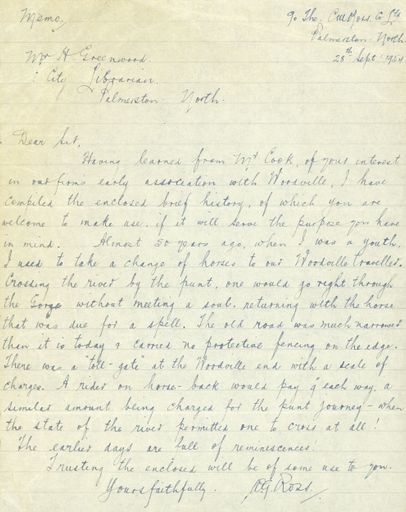 Memo,
℅ The C M Ross Co Ltd
Palmerston North.
28th Sept. 19
Mr H Greenwood.
City Librarian.
Palmerston North.
Dear Sir,
Having learned from Mr Cook, of your interest
in our firms early association with Woodville, I have
compiled the enclosed brief history, of which you are
welcome to make use, if it will serve the purpose you have
in mind. Almost 50 years ago, when I was a youth,
I used to take a change of horses to our Woodville traveller.
Crossing the river by the punt, one would go right through
the Gorge without meeting a soul, returning with the horse
that was due for a spell. The old road was much narrower
than it is today & carried no protective fencing on the edge.
There was a "toll-gate" at the Woodville end with a scale of
charges. A rider on horse-back would pay each way, a
similar amount being charged for the punt journey - when
the state of the river permitted one to cross at all!
The earlier days are full of reminiscences!
Trusting the enclosed will be of some use to you.
Yours faithfully. Ross.